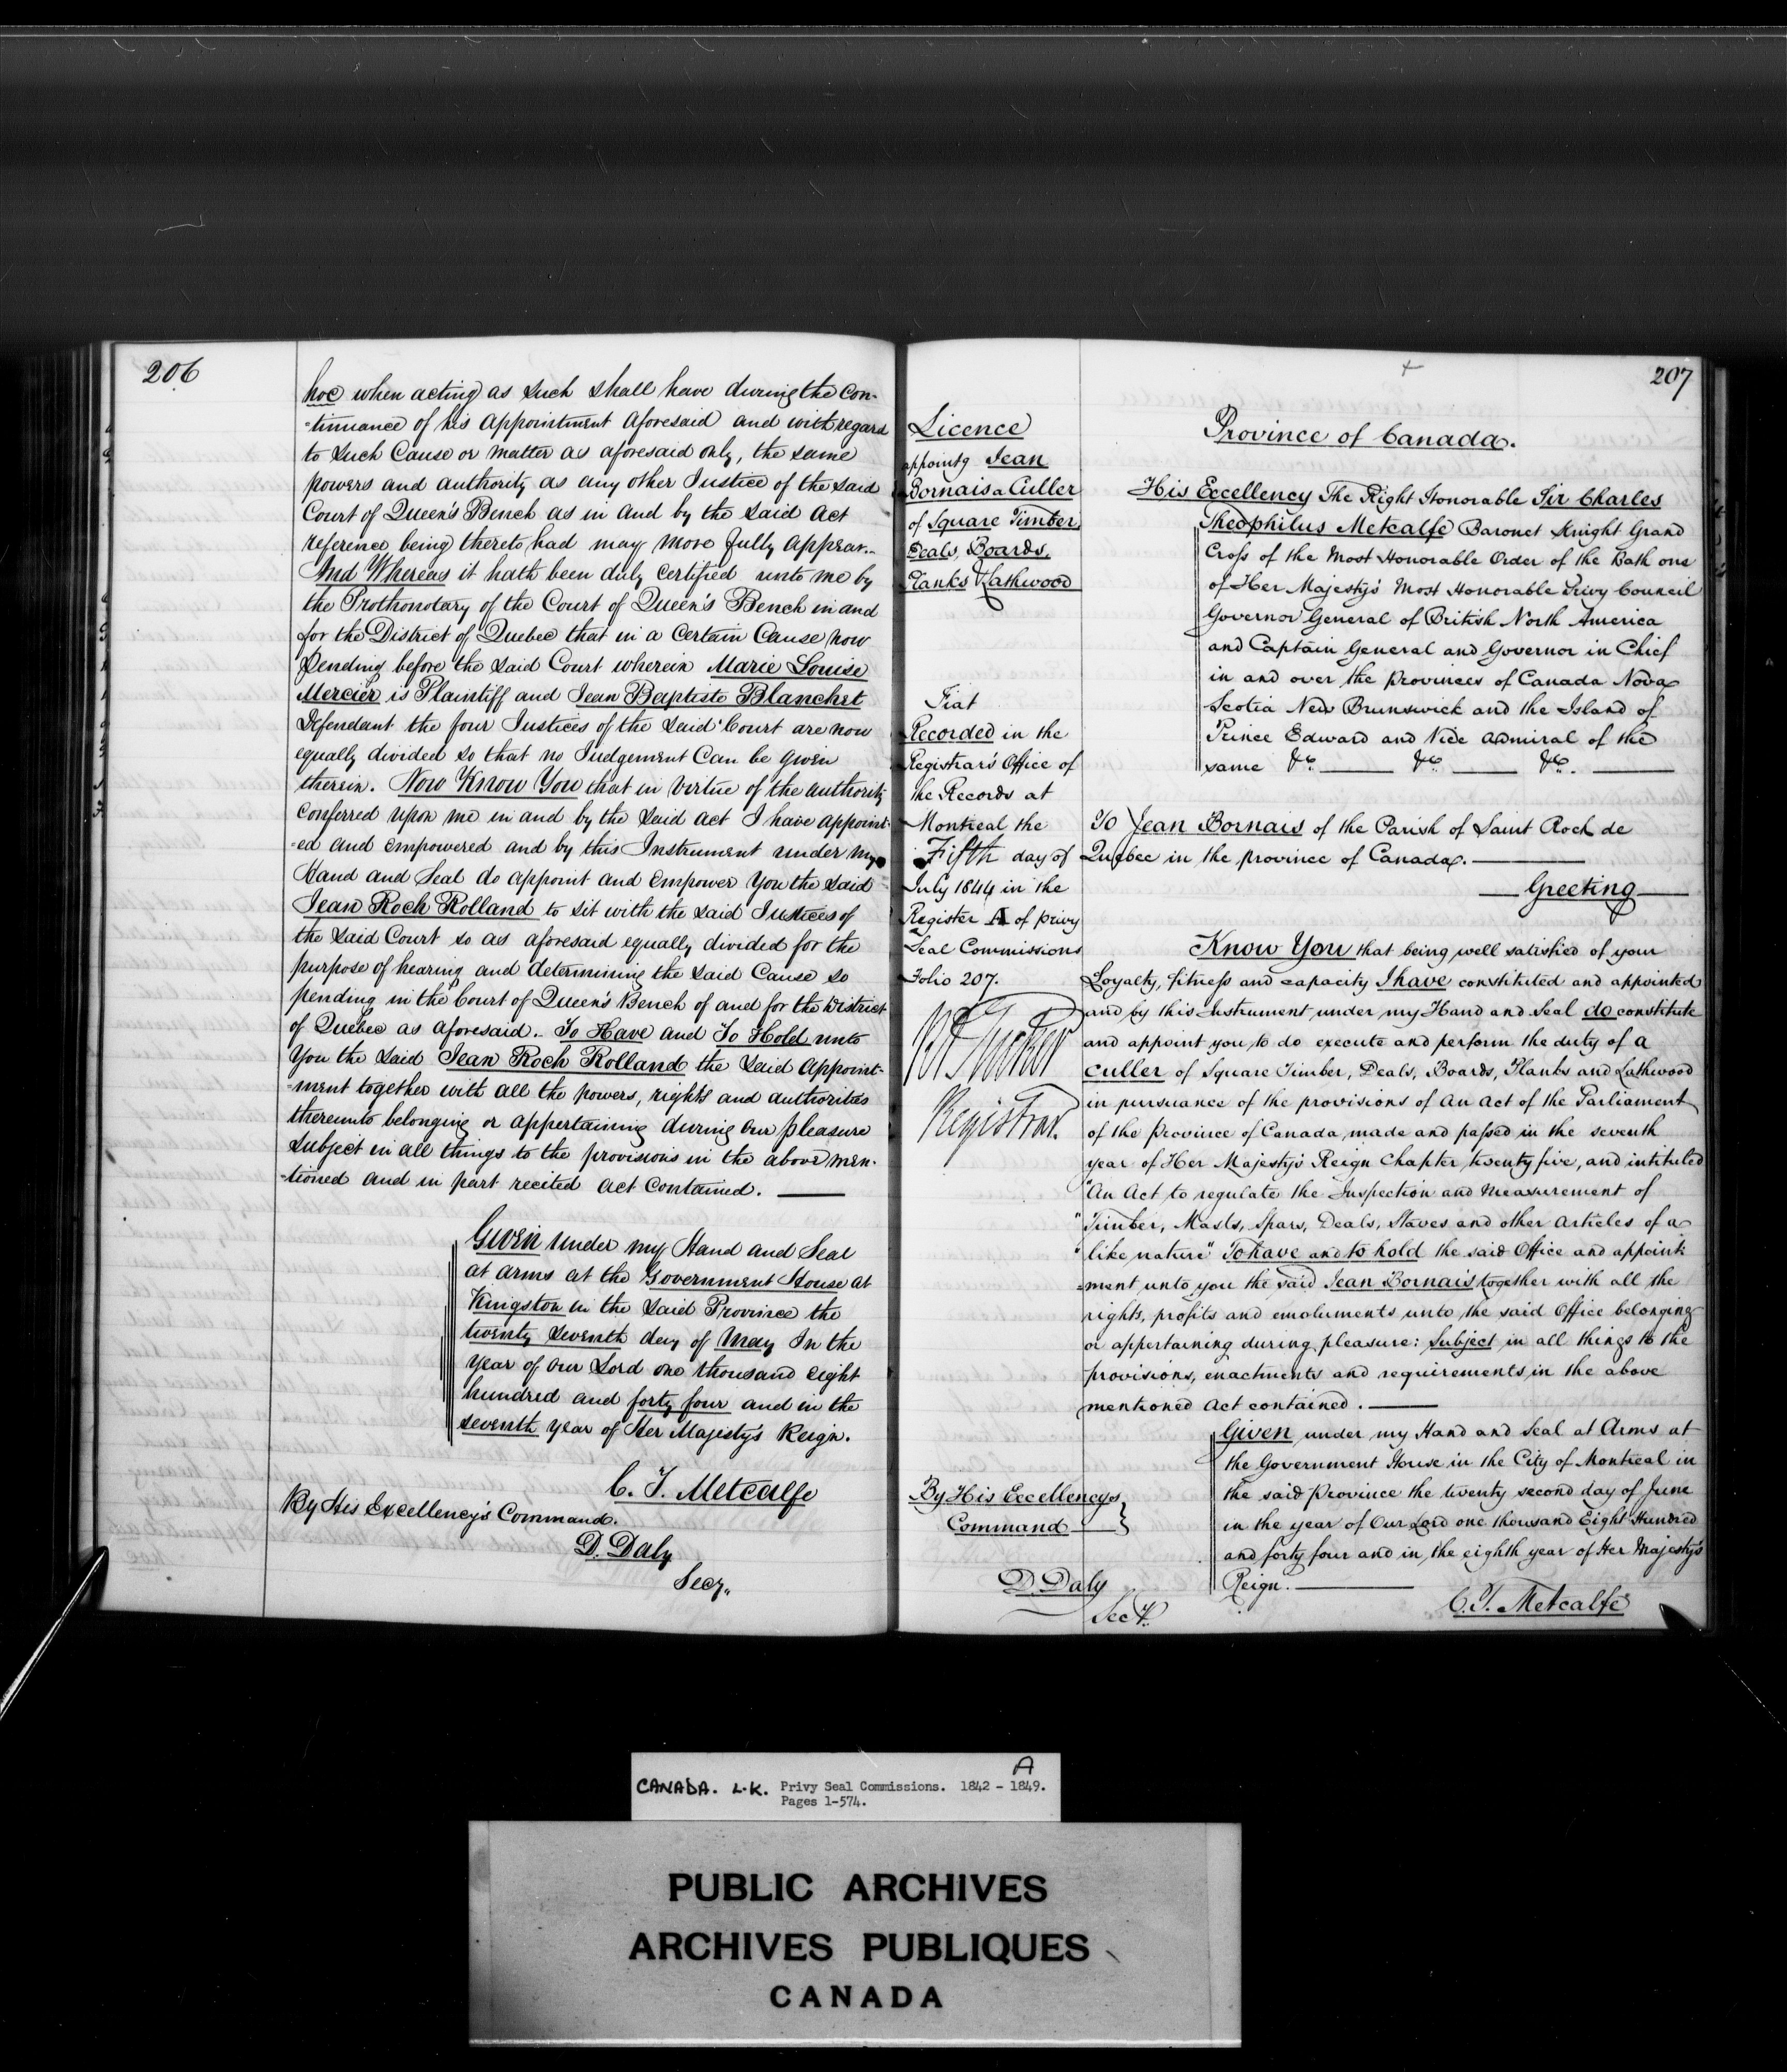 206
hoc when acting as such shall have during the con-
-tinuance of his appointment aforesaid and with regard
to such Cause or matter as aforesaid only, the same
powers and authority as any other Justice of the said
Court of Queen's Bench as in and by the said Act
reference being thereto had may more fully appear..
And Whereas it hath been duly certified unto me by
the Prothonotary of the Court of Queen's Bench in and
for the District of Quebec that in a certain Cause now
pending before the said Court wherein Marie Louise
Mercier is Plaintiff and Jean Baptiste Blanchet
Defendant the four Justices of the said Court are now
equally divided so that no Judgement Can be given
therein. Now Know You that in virtue of the authority
conferred upon me in and by the said act I have appoint-
-ed and empowered and by this Instrument under my
Hand and Seal do appoint and empower You the said
Jean Roch Rolland to sit with the said Justices of
the said Court so as aforesaid equally divided for the
purpose of hearing and determining the said Cause so
pending in the Court of Queen's Bench of and for the District
of Quebec as aforesaid.. To Have and To Hold unto
You the said Jean Roch Rolland the said appoint-
-ment together with all the powers, rights and authorities
thereunto belonging or appertaining during our pleasure
subject in all things to the provisions in the above men-
-tioned and in part recited act contained.
Given under my Hand and Seal
at arms at the Government House at
Kingston in the said Province the
twenty seventh day of May In the
Year of our Lord one thousand eight
hundred and forty four and in the
seventh year of Her Majesty's Reign.
C. T. Metcalfe
By His Excellency's Command.
D. Daly
Secy.,
207
Licence
appointg Jean
Bornais a Culler
of Square Timber,
Deals, Boards,
Planks & Lathwood
Fiat
Recorded in the
Registrar's Office of
the Records at
Montreal the
Fifth day of
July 1844 in the
Register A of privy
Seal Commissions
Folio 207.
Registrar.
Province of Canada.
His Excellency The Right Honorable Sir Charles
Theophilus Metcalfe Baronet Knight Grand
Cross of the Most Honorable Order of the Bath one
of Her Majesty's Most Honorable Privy Council
Governor General of British North America
and Captain General and Governor in Chief
in and over the Provinces of Canada Nova
Scotia New Brunswick and the Island of
Prince Edward and Vice Admiral of the
same &c. &c. &c.
To Jean Bornais of the Parish of Saint Roch de
Quebec in the province of Canada.
Greeting
Know You that being well satisfied of your
Loyalty, fitness and capacity I have constituted and appointed
and by this Instrument under my Hand and Seal do constitute
and appoint you to do execute and perform the duty of a
culler of Square Timber, Deals, Boards, Planks and Lathwood
in pursuance of the provisions of an act of the Parliament
of the Province of Canada made and passed in the seventh
year of Her Majesty's Reign Chapter twenty five, and intituled
"An Act to regulate the Inspection and Measurement of
"Timber, Masts, Spars, Deals, Staves and other articles of a
"like nature" To have and to hold the said Office and appoint-
-ment unto you the said Jean Bornais together with all the
rights, profits and emoluments unto the said Office belonging
or appertaining during pleasure: Subject in all things to the
provisions, enactments and requirements in the above
mentioned act contained.
Given under my Hand and Seal at Arms at
the Government House in the City of Montreal in
the said Province the twenty second day of June
in the year of Our Lord one thousand Eight Hundred
and forty four and in the eighth year of Her Majesty's
Reign.
C. T. Metcalfe
By His Excellencys
Command
D. Daly
Secy.
A
CANADA. L.K. Privy Seal Commissions. 1842 - 1849.
Pages 1-574.
PUBLIC ARCHIVES
ARCHIVES PUBLIQUES
CANADA